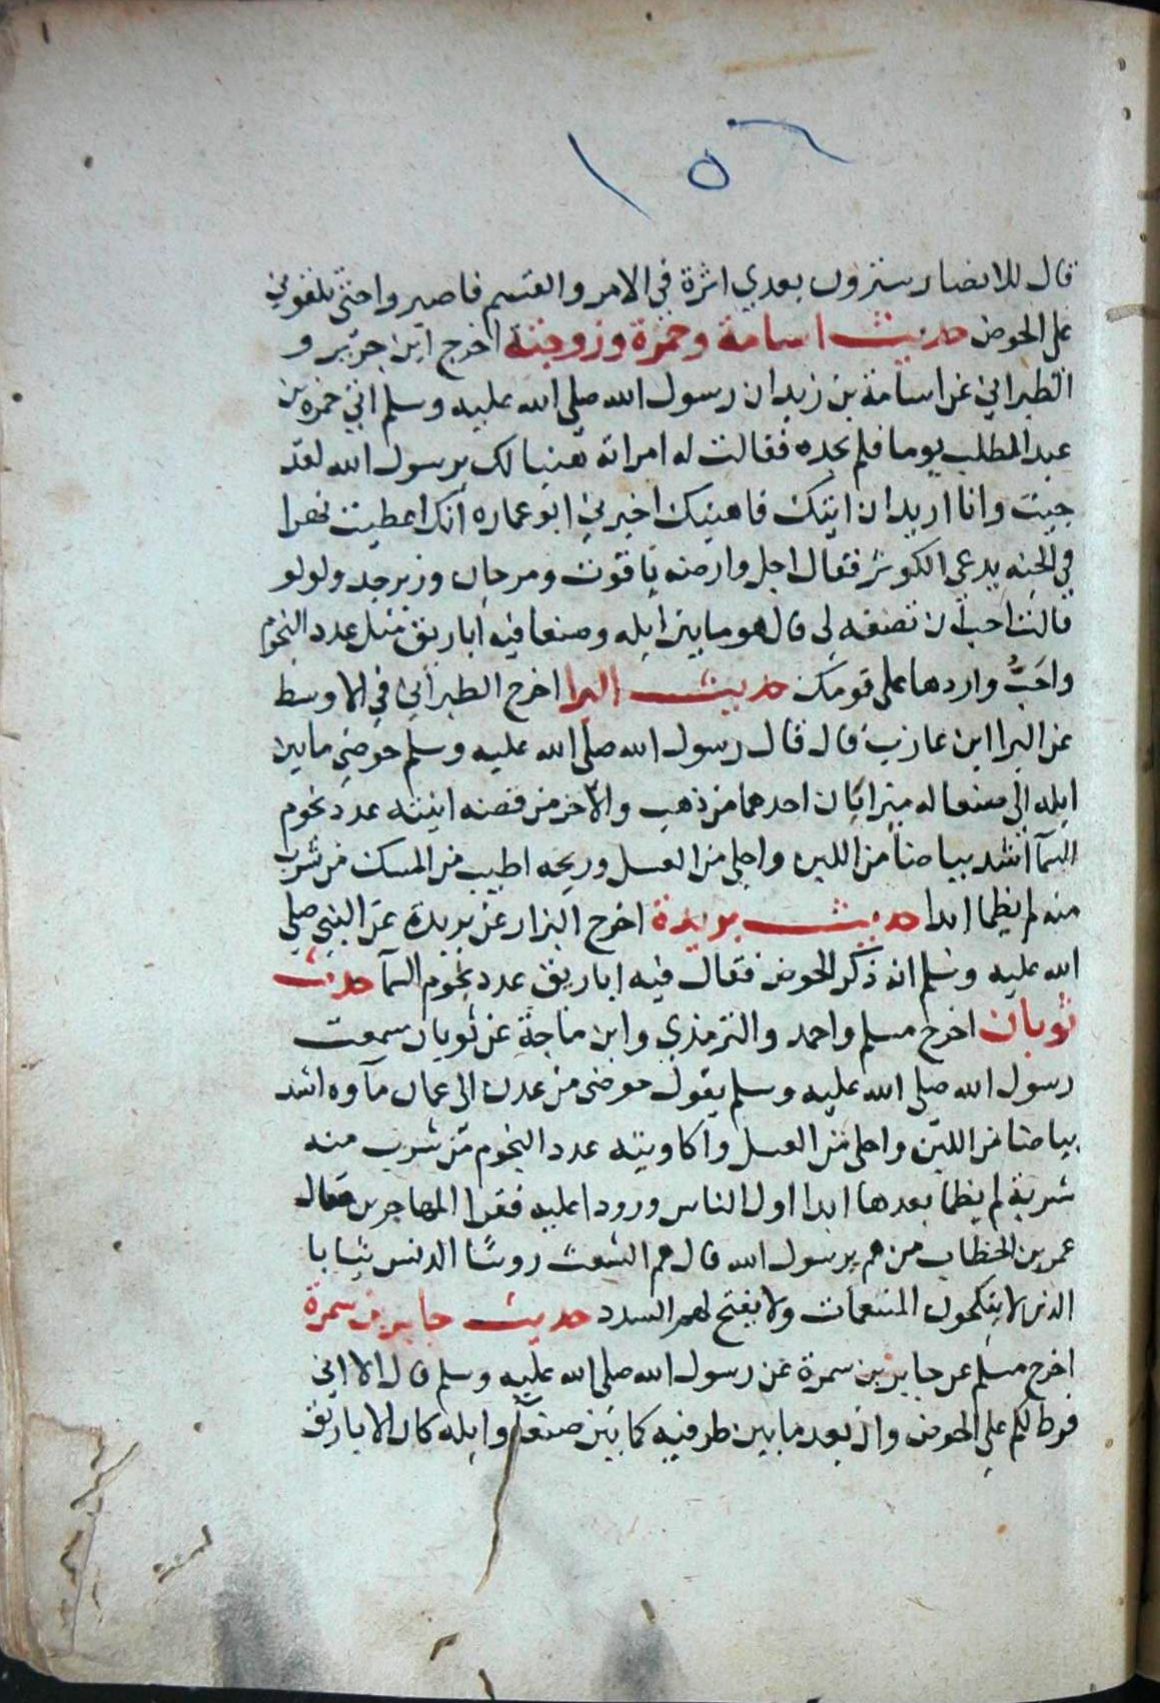 ١٥٦
قال للانصار سترون بعدي اثرة في الامر والقسم فاصبروا حتى تلقوني
على الحوض حديث اسامة وحمزة وزوجته اخرج ابن جرير و
الطبراني عن اسامة بن زيد ان رسول الله صلى الله عليه وسلم اتي حمزه بن
عبد المطلب يوما فلم يجده فقالت له امراته هنيا لك يرسول الله لقد
جيت وانا اريد ان اتيك فاهنيك اخبرني ابو عماره انك اعطيت نهرا
في الجنه يدعى الكوثر فقال اجل وارضه ياقوت ومرجان وزبرجد ولولو
قالت احب ان تصفه لي قال هو ما بين ايله وصنعا فيه اباريق مثل عدد النجوم
واحَبُّ واردها على قومك حديث البرا اخرج الطبراني في الاوسط
عن البرا ابن عازب قال قال رسول الله صلى الله عليه وسلم حوضي ما بين
ايله الى صنعا له ميزابان احدهما من ذهب والاخر من فضه انيته عدد نجوم
السمآ اشد بياضا من اللبن واحلى من العسل وريحه اطيب من المسك من شرب
منه لم يظما ابدا حديث بريدة اخرج البزار عن بريدة عن النبي صلى
الله عليه وسلم انه ذكر الحوض فقال فيه اباريق عدد نجوم السمآ حديث
ثوبان اخرج مسلم واحمد والترمذي وابن ماجة عن ثوبان سمعت
رسول الله صلى الله عليه وسلم يقول حوضى من عدن الى عمان مآوه اشد
بياضا من اللبن واحلى من العسل واكاويبه عدد النجوم من شرب منه
شربة لم يظما بعدها ابدا اول الناس ورودا عليه فقرا المهاجرين فقال
عمر بن الخطاب من هم يرسول الله قال هم الشعث روسًا الدنس ثيابا
الذين لا ينكحون المتنعمات ولا يفتح لهم السدد حديث جابر بن سمرة
اخرج مسلم عن جابر بن سمرة عن رسول الله صلى الله عليه وسلم قال الا اني
فرط لكم على الحوض وان بعد ما بين طرفيه كما بين صنعآ وايله كان الاباريق